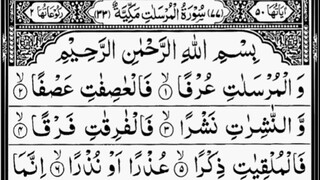 اٰیَاتُهَا ٥٠ (٧٧) سُوْرَةُ الْمُرْسَلٰتِ مَكِّیَّةٌ (٣٣) رُكُوْعَاتُهَا ٢
بِسْمِ اللّٰهِ الرَّحْمٰنِ الرَّحِیْمِ
وَ الْمُرْسَلٰتِ عُرْفًا ۝١ فَالْعٰصِفٰتِ عَصْفًا ۝٢
وَّ النّٰشِرٰتِ نَشْرًا ۝٣ فَالْفٰرِقٰتِ فَرْقًا ۝٤
فَالْمُلْقِیٰتِ ذِكْرًا ۝٥ عُذْرًا اَوْ نُذْرًا ۝٦ اِنَّمَا